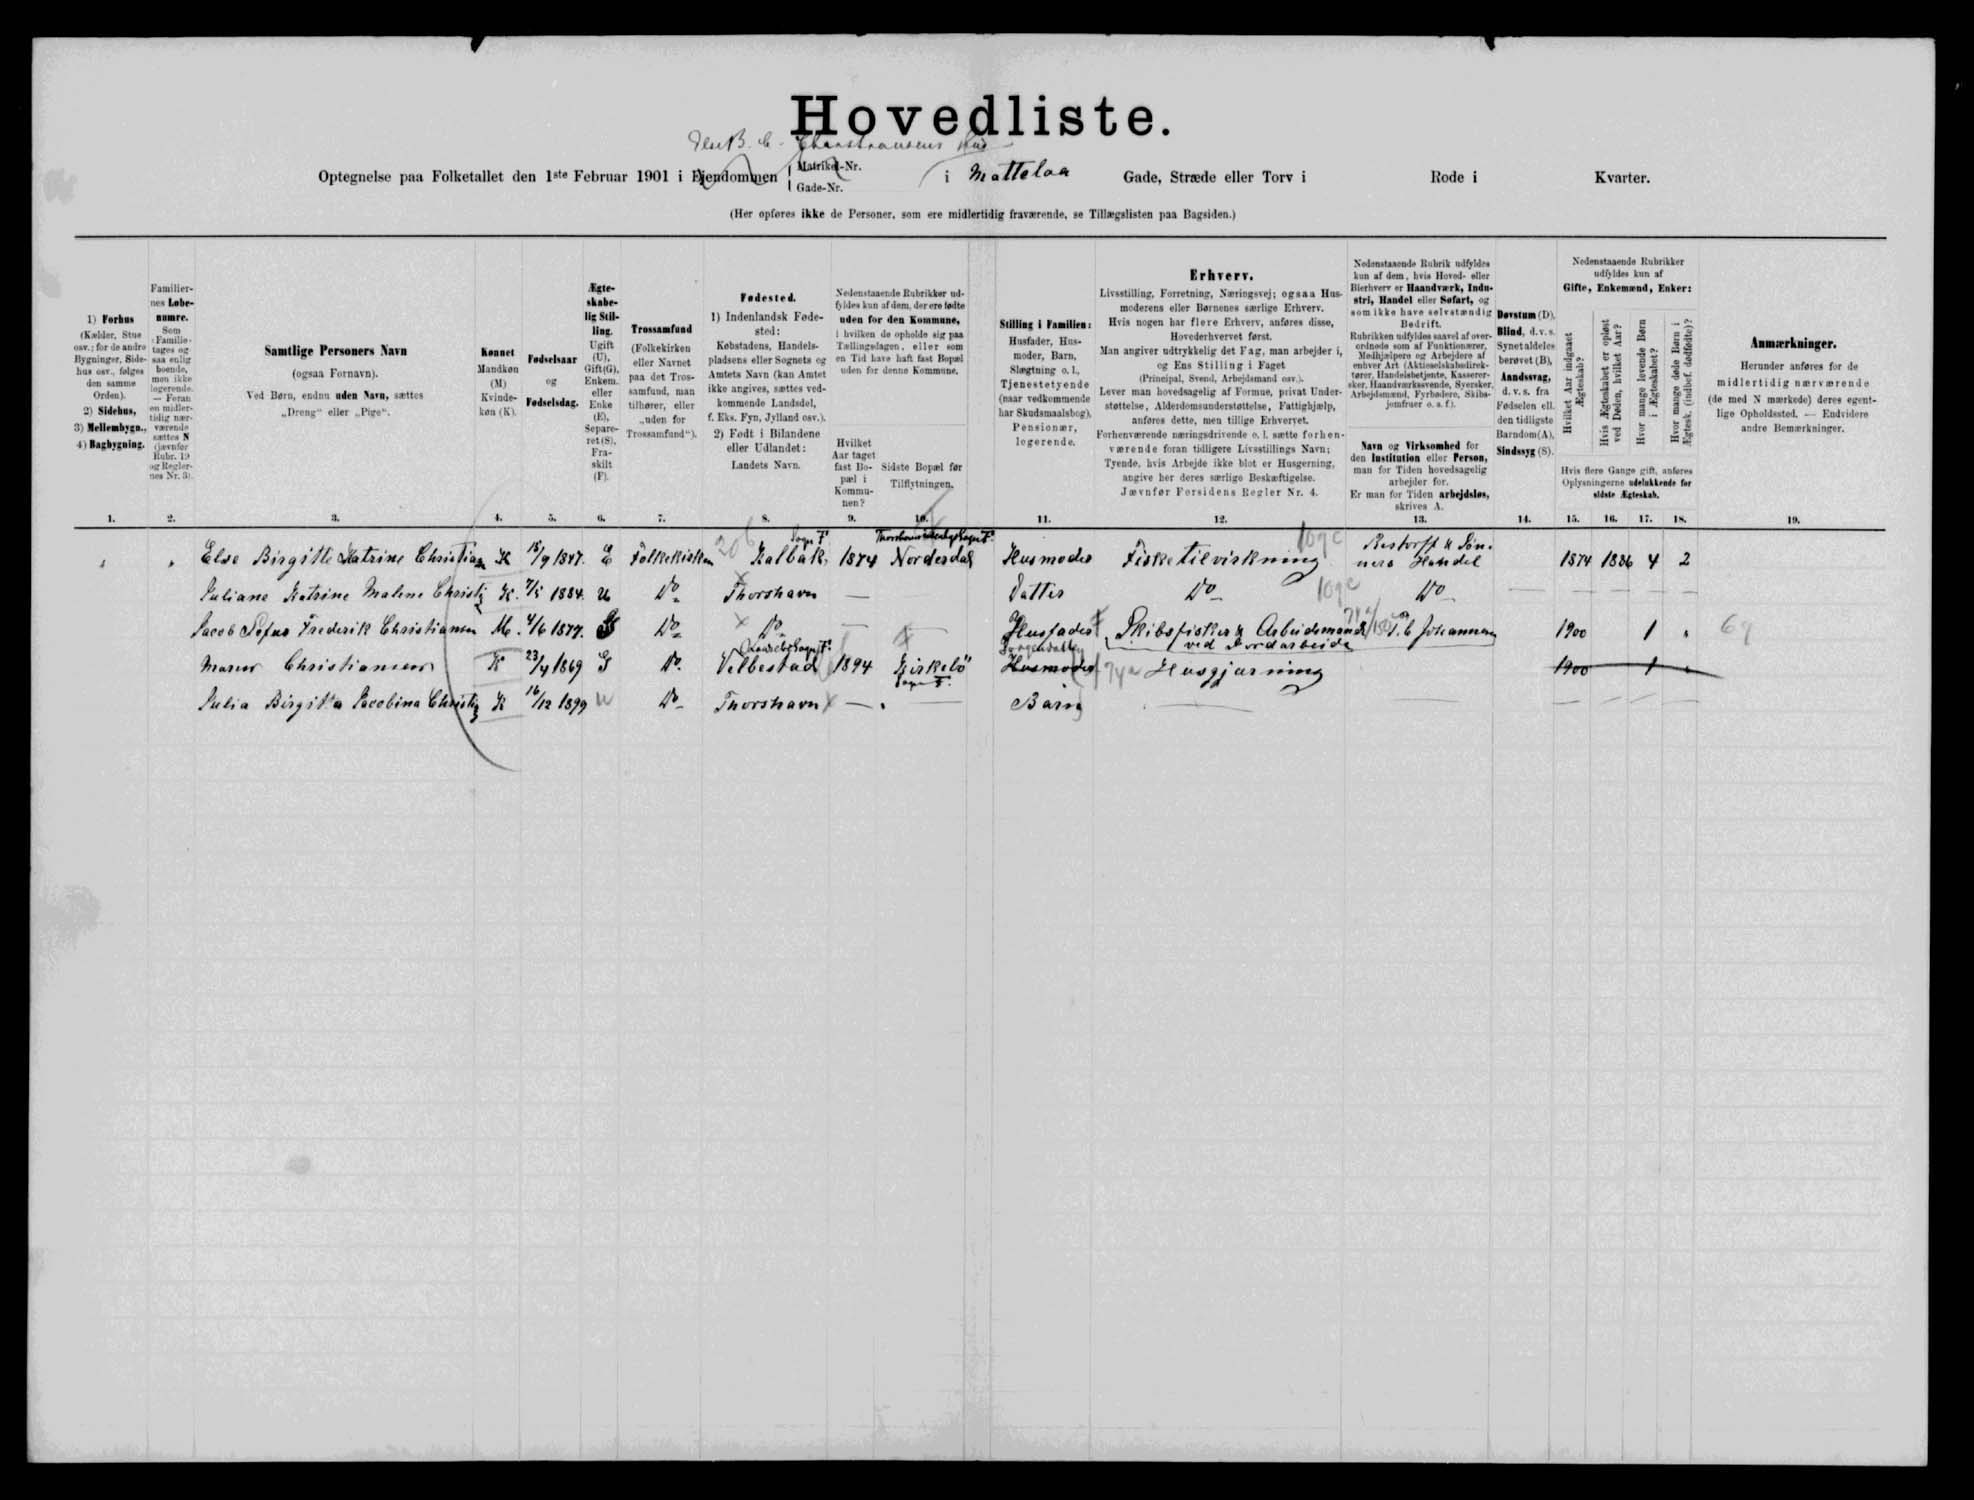 Hovedliste.
Else B. C. Christiansens Hus
Optegnelse paa Folketallet den 1ste Februar 1901 i Ejendommen Matrikel-Nr. Gade-Nr. i Mattelaa Gade, Stræde eller Torv i Rode i Kvarter.
(Her opføres ikke de Personer, som ere midlertidig fraværende, se Tillægslisten paa Bagsiden.)
1) Forhus
(Kælder, Stue
osv.; for de andre
Bygninger, Side-
hus osv., følges
den samme
Orden).
2) Sidehus,
3) Mellembygn.,
4) Bagbygning.
1.
Familier-
nes Løbe-
numre.
Som
Familie
tages og-
saa enlig
boende,
men ikke
logerende.
— Foran
en midler-
tidig nær-
værende
sættes N
(jævnfør
Rubr. 19
og Regler-
nes Nr. 3).
2.
Samtlige Personers Navn
(ogsaa Fornavn).
Ved Børn, endnu uden Navn, sættes
„Dreng“ eller „Pige“.
3.
Kønnet
Mandkøn
(M)
Kvinde-
køn (K).
4.
Fødselsaar
og
Fødselsdag.
5.
Ægte-
skabe-
lig Stil-
ling.
Ugift
(U),
Gift(G),
Enkem.
eller
Enke
(E),
Separe-
ret (S),
Fra-
skilt
(F).
6.
Trossamfund
(Folkekirken
eller Navnet
paa det Tros-
samfund, man
tilhører, eller
„uden for
Trossamfund“).
7.
Fødested.
1) Indenlandsk Føde-
sted:
Købstadens, Handels-
pladsens eller Sognets og
Amtets Navn (kan Amtet
ikke angives, sættes ved-
kommende Landsdel,
f. Eks. Fyn, Jylland osv.).
2) Født i Bilandene
eller Udlandet:
Landets Navn.
8.
Nedenstaaende Rubrikker ud-
fyldes kun af dem, der ere fødte
uden for den Kommune,
i hvilken de opholde sig paa
Tællingsdagen, eller som
en Tid have haft fast Bopæl
uden for denne Kommune.
Hvilket
Aar taget
fast Bo-
pæl i
Kommu-
nen?
9.
Sidste Bopæl før
Tilflytningen.
10.
Stilling i Familien:
Husfader, Hus-
moder, Barn,
Slægtning o. l.,
Tjenestetyende
(naar vedkommende
har Skudsmaalsbog),
Pensionær,
logerende.
11.
Erhverv.
Livsstilling, Forretning, Næringsvej; ogsaa Hus-
moderens eller Børnenes særlige Erhverv.
Hvis nogen har flere Erhverv, anføres disse,
Hovederhvervet først.
Man angiver udtrykkelig det Fag, man arbejder i,
og Ens Stilling i Faget
(Principal, Svend, Arbejdsmand osv.).
Lever man hovedsagelig af Formue, privat Under-
støttelse, Alderdomsunderstøttelse, Fattighjælp,
anføres dette, men tillige Erhvervet.
Forhenværende næringsdrivende o. l. sætte forhen-
værende foran tidligere Livsstillings Navn;
Tyende, hvis Arbejde ikke blot er Husgerning,
angive her deres særlige Beskæftigelse.
Jævnfør Forsidens Regler Nr. 4.
12.
Nedenstaaende Rubrik udfyldes
kun af dem, hvis Hoved- eller
Bierhverv er Haandværk, Indu-
stri, Handel eller Søfart, og
som ikke have selvstændig
Bedrift.
Rubrikken udfyldes saavel af over-
ordnede som af Funktionærer,
Medhjælpere og Arbejdere af
enhver Art (Aktieselskabsdirek-
tører, Handelsbetjente, Kasserer-
sker, Haandværkssvende, Syersker,
Arbejdsmænd, Fyrbødere, Skibs-
jomfruer o. s. f.).
Navn og Virksomhed for
den Institution eller Person,
man for Tiden hovedsagelig
arbejder for.
Er man for Tiden arbejdsløs,
skrives A.
13.
Døvstum (D),
Blind, d. v. s.
Synet aldeles
berøvet (B),
Aandssvag,
d. v. s. fra
Fødselen ell.
den tidligste
Barndom(A),
Sindssyg (S).
14.
Nedenstaaende Rubrikker
udfyldes kun af
Gifte, Enkemænd, Enker:
Hvilket Aar indgaaet
Ægteskab?
Hvis Ægteskabet er opløst
ved Døden, hvilket Aar?
Hvor mange levende Børn
i Ægteskabet?
Hvor mange døde Børn i
Ægtesk. (indbef. dødfødte)?
Hvis flere Gange gift, anføres
Oplysningerne udelukkende for
sidste Ægteskab.
15. 16. 17. 18.
Anmærkninger.
Herunder anføres for de
midlertidig nærværende
(de med N mærkede) deres egent-
lige Opholdssted. — Endvidere
andre Bemærkninger.
19.
Sogn F. Thorshavn
Else Birgitte Katrine Christian K 15/9 1847. E Folkekirken 206 Kalbak 1874 Nordredal Husmoder Fisketilvirkning 109c Restorff & Søn- ners Handel 1874 1886 4 2
Juliane Katrine Malene Christi K. 7/5 1884. U Do Thorshavn — Datter Do 109c Do — — — — —
Jacob Sofus Frederik Christiansen M. 4/6 1877. G Do Do — — Husfader Skibsfisker & Arbeidsmand ved Jordarbeide J. C. Johannesen 1900 1 69
Maren Christiansen K 23/4 1869 G Do. Velbestad 1894 Kirkebö Sogn F. Husmoder 74a Husgjærning 1900 1
Julia Birgitta Jacobina Christi K 16/12 1899 U Do Thorshavn — — Barn — — — — — —